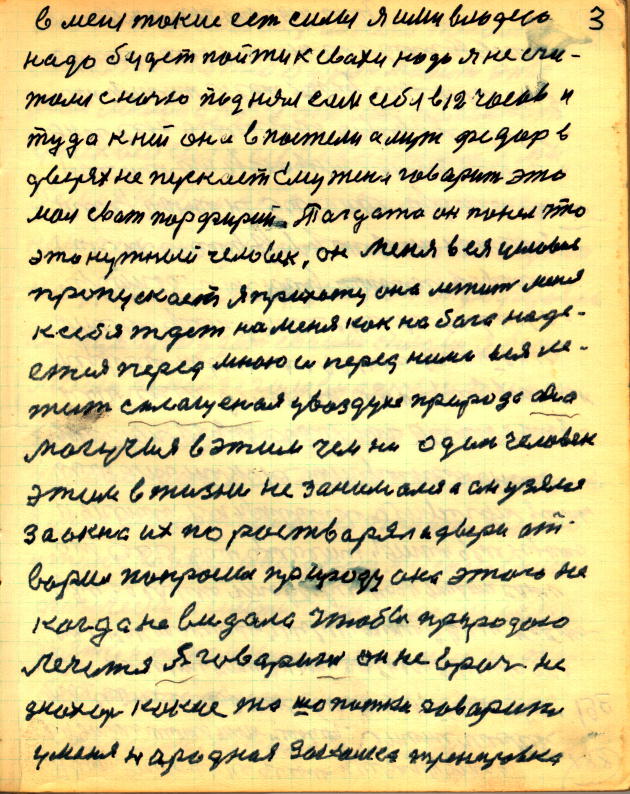 3
в меня такие ест силы я ими владею
надо будет пойти к свахи надо я не счи-
тали с ночю поднял сам себя в 12 часов и
туда к ней она в постели а муж федор в
дверях не пускает Ему жена говарит это
мои сват парфирий. Тагдато он понял что
это нужный человек, он меня в
пропускает я прихожу она лежит меня
к себя ждет на меня как на бога наде-
ется перед мною и перед ними вся ле-
жит сплащеная увоздухе природа ана
могучия в этим чем ни один человек
этим в жизни не занимался а он узялся
за окна их по ростварял а двери от-
ворил попросил природу она этого не
когда не видала чтобы природою
лечится Я говарит он не врач не
знахор какие то шопотки говарит
у меня народная закалка тренировка